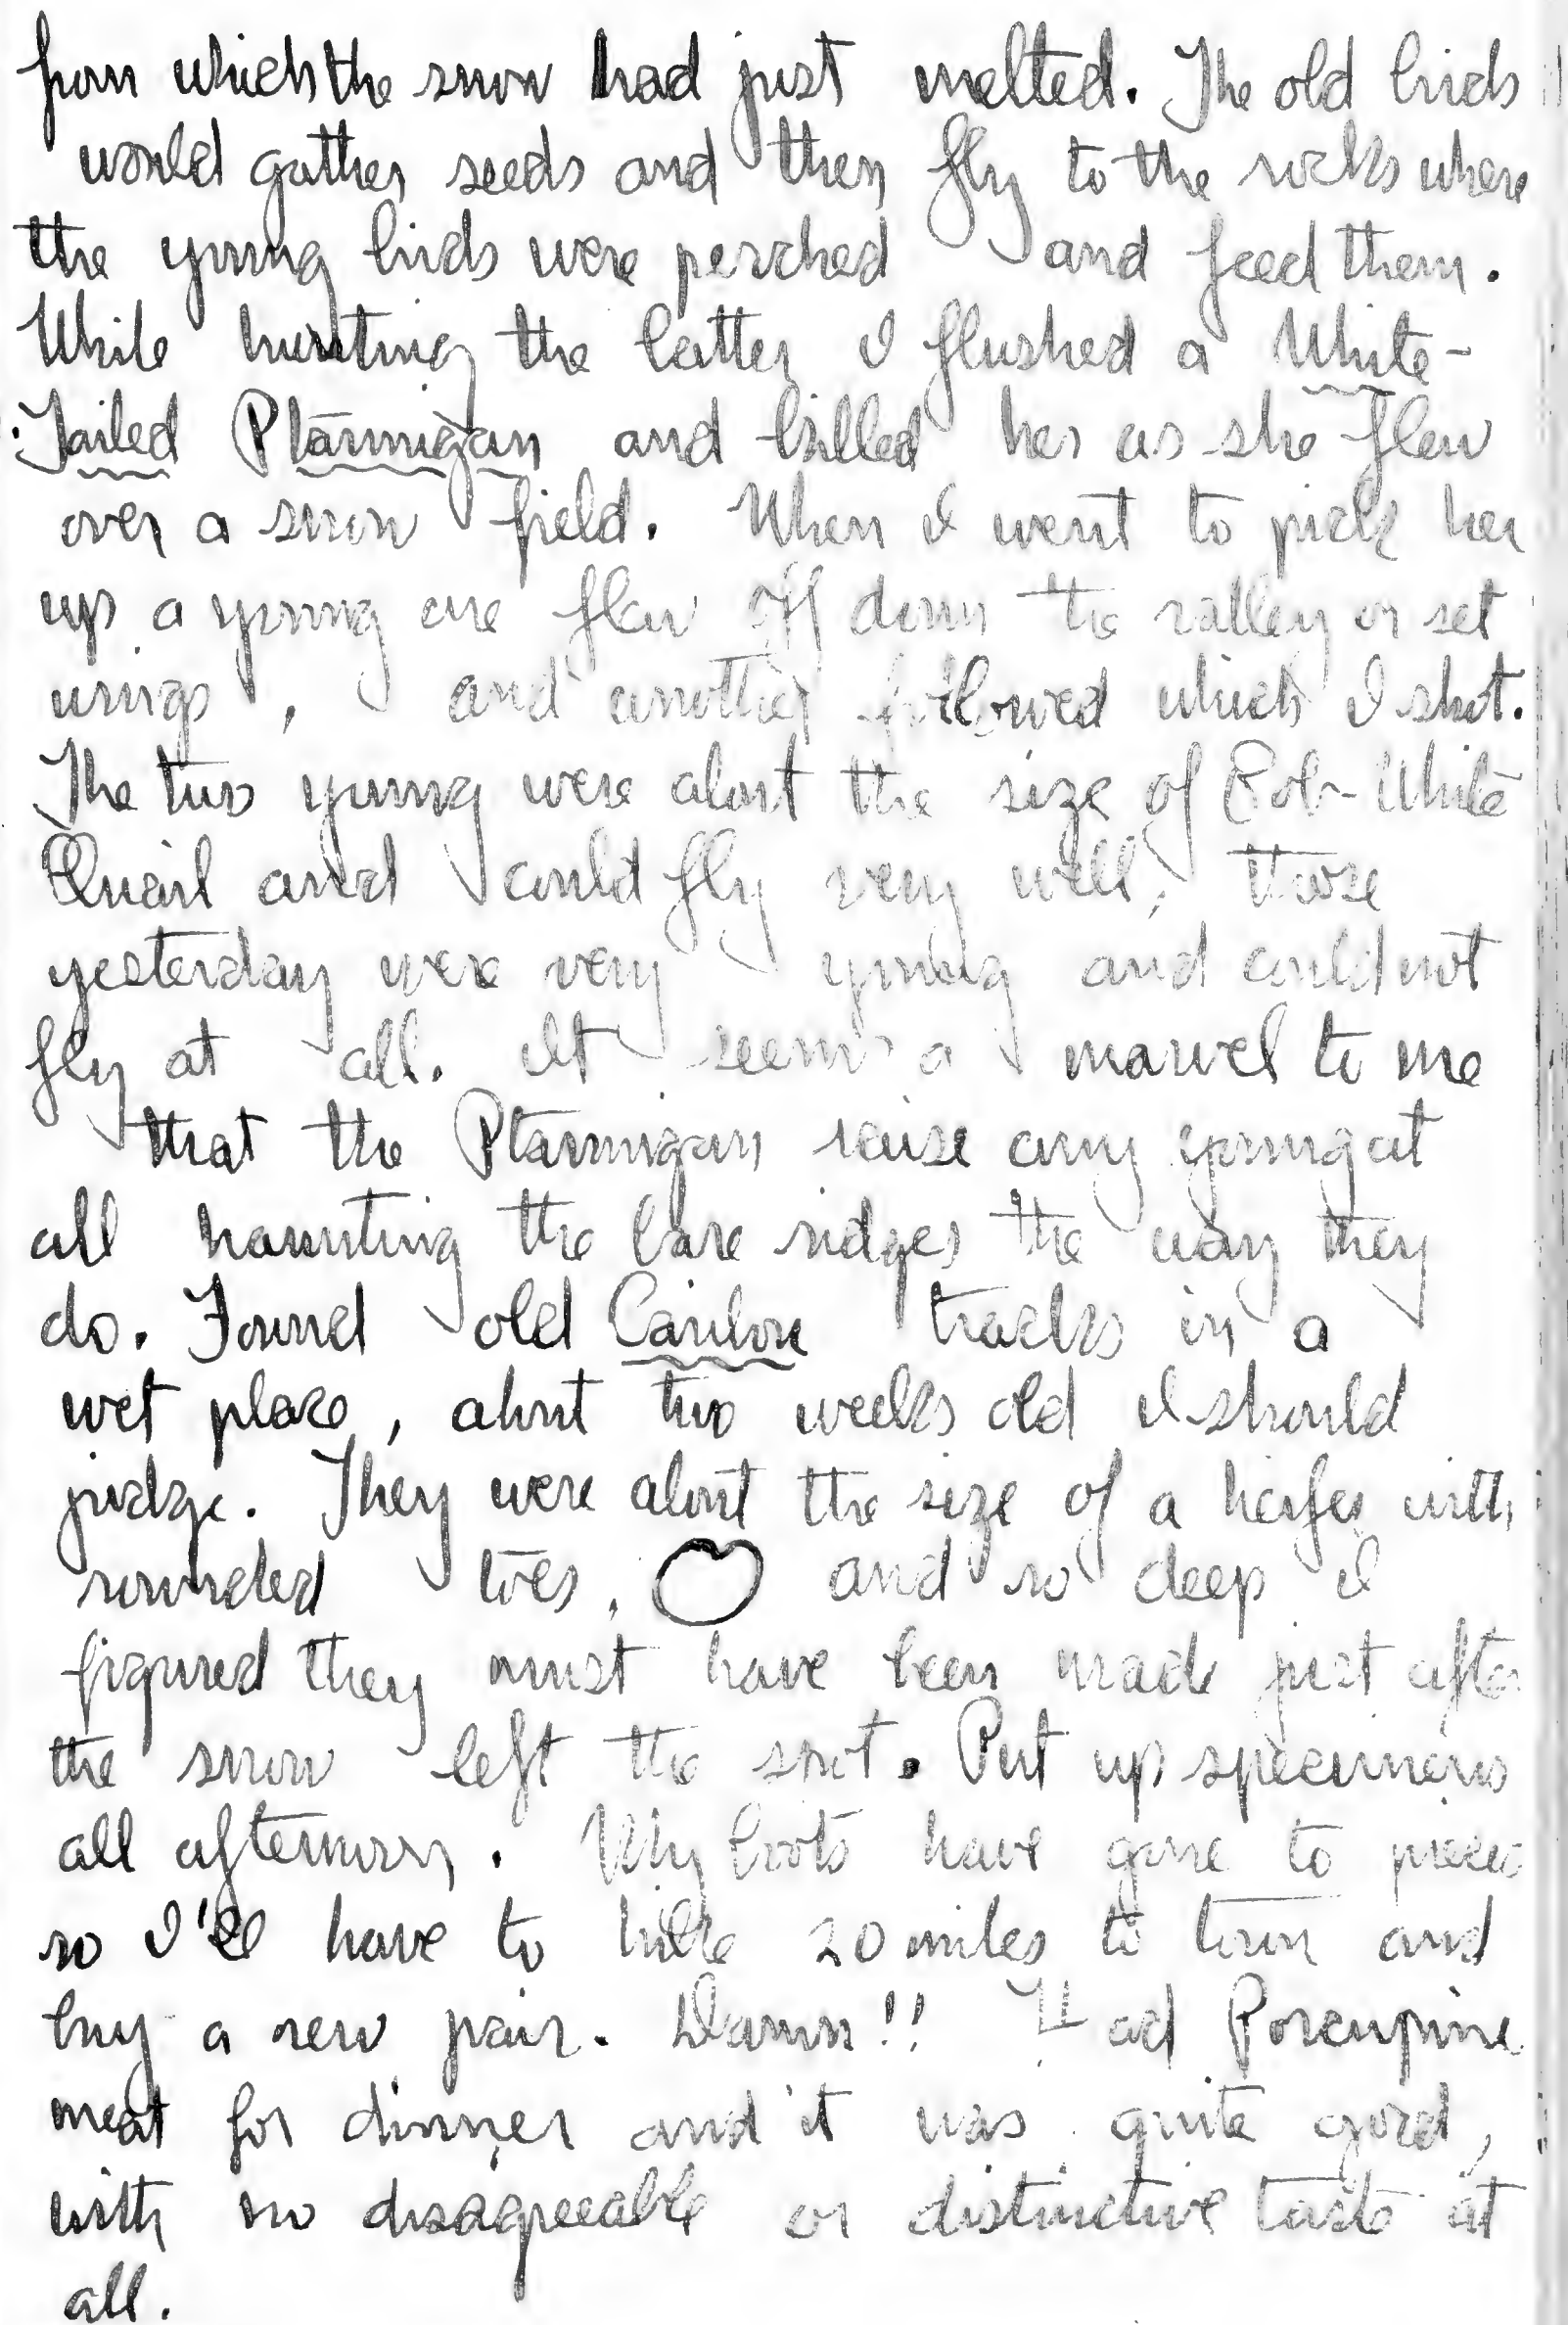 from which the snow had just melted. The old birds
would gather seeds and then fly to the rocks where
the young birds were perched and feed them.
While hunting the latter I flushed a White-
Tailed Ptarmigan and killed her as she flew
over a snow field. When I went to pick her
up a young one flew off down the valley on set
wings, and another followed which I shot.
The two young were about the size of Bob-White
Quail and could fly very well; those
yesterday were very young and could not
fly at all. It seems a marvel to me
that the Ptarmigan raise any young at
all haunting the bare ridges the way they
do. Found old Caribou tracks in a
wet place, about two weeks old I should
judge. They were about the size of a heifer with
rounded toes, and so deep I
figured they must have been made just after
the snow left the spot. Put up specimens
all afternoon. My boots have gone to pieces
so I'll have to hike 20 miles to town and
buy a new pair. Damn!! Had Porcupine
meat for dinner and it was quite good,
with no disagreeable or distinctive taste at
all.